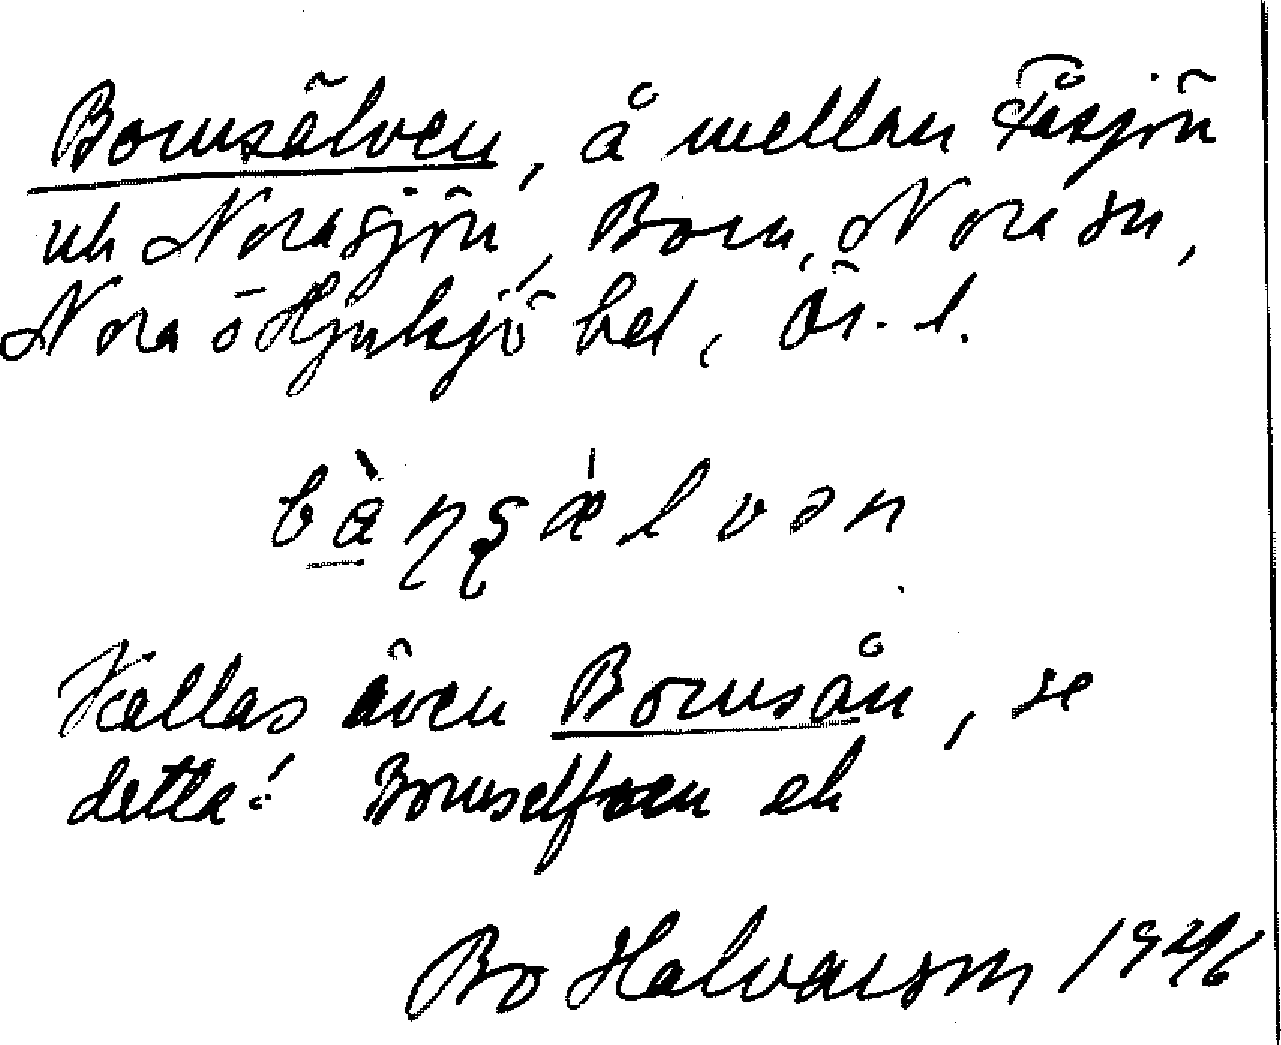 Bornsälven, å mellan Fåsjön
och Norasjön, Born, Nora sn,
Nora o Hjulsjö bsl, Ör. l.
bàɳʂælvən
Kallas även Bornsån, se
detta! Bornselfven ek
Bo Halvarson 1946